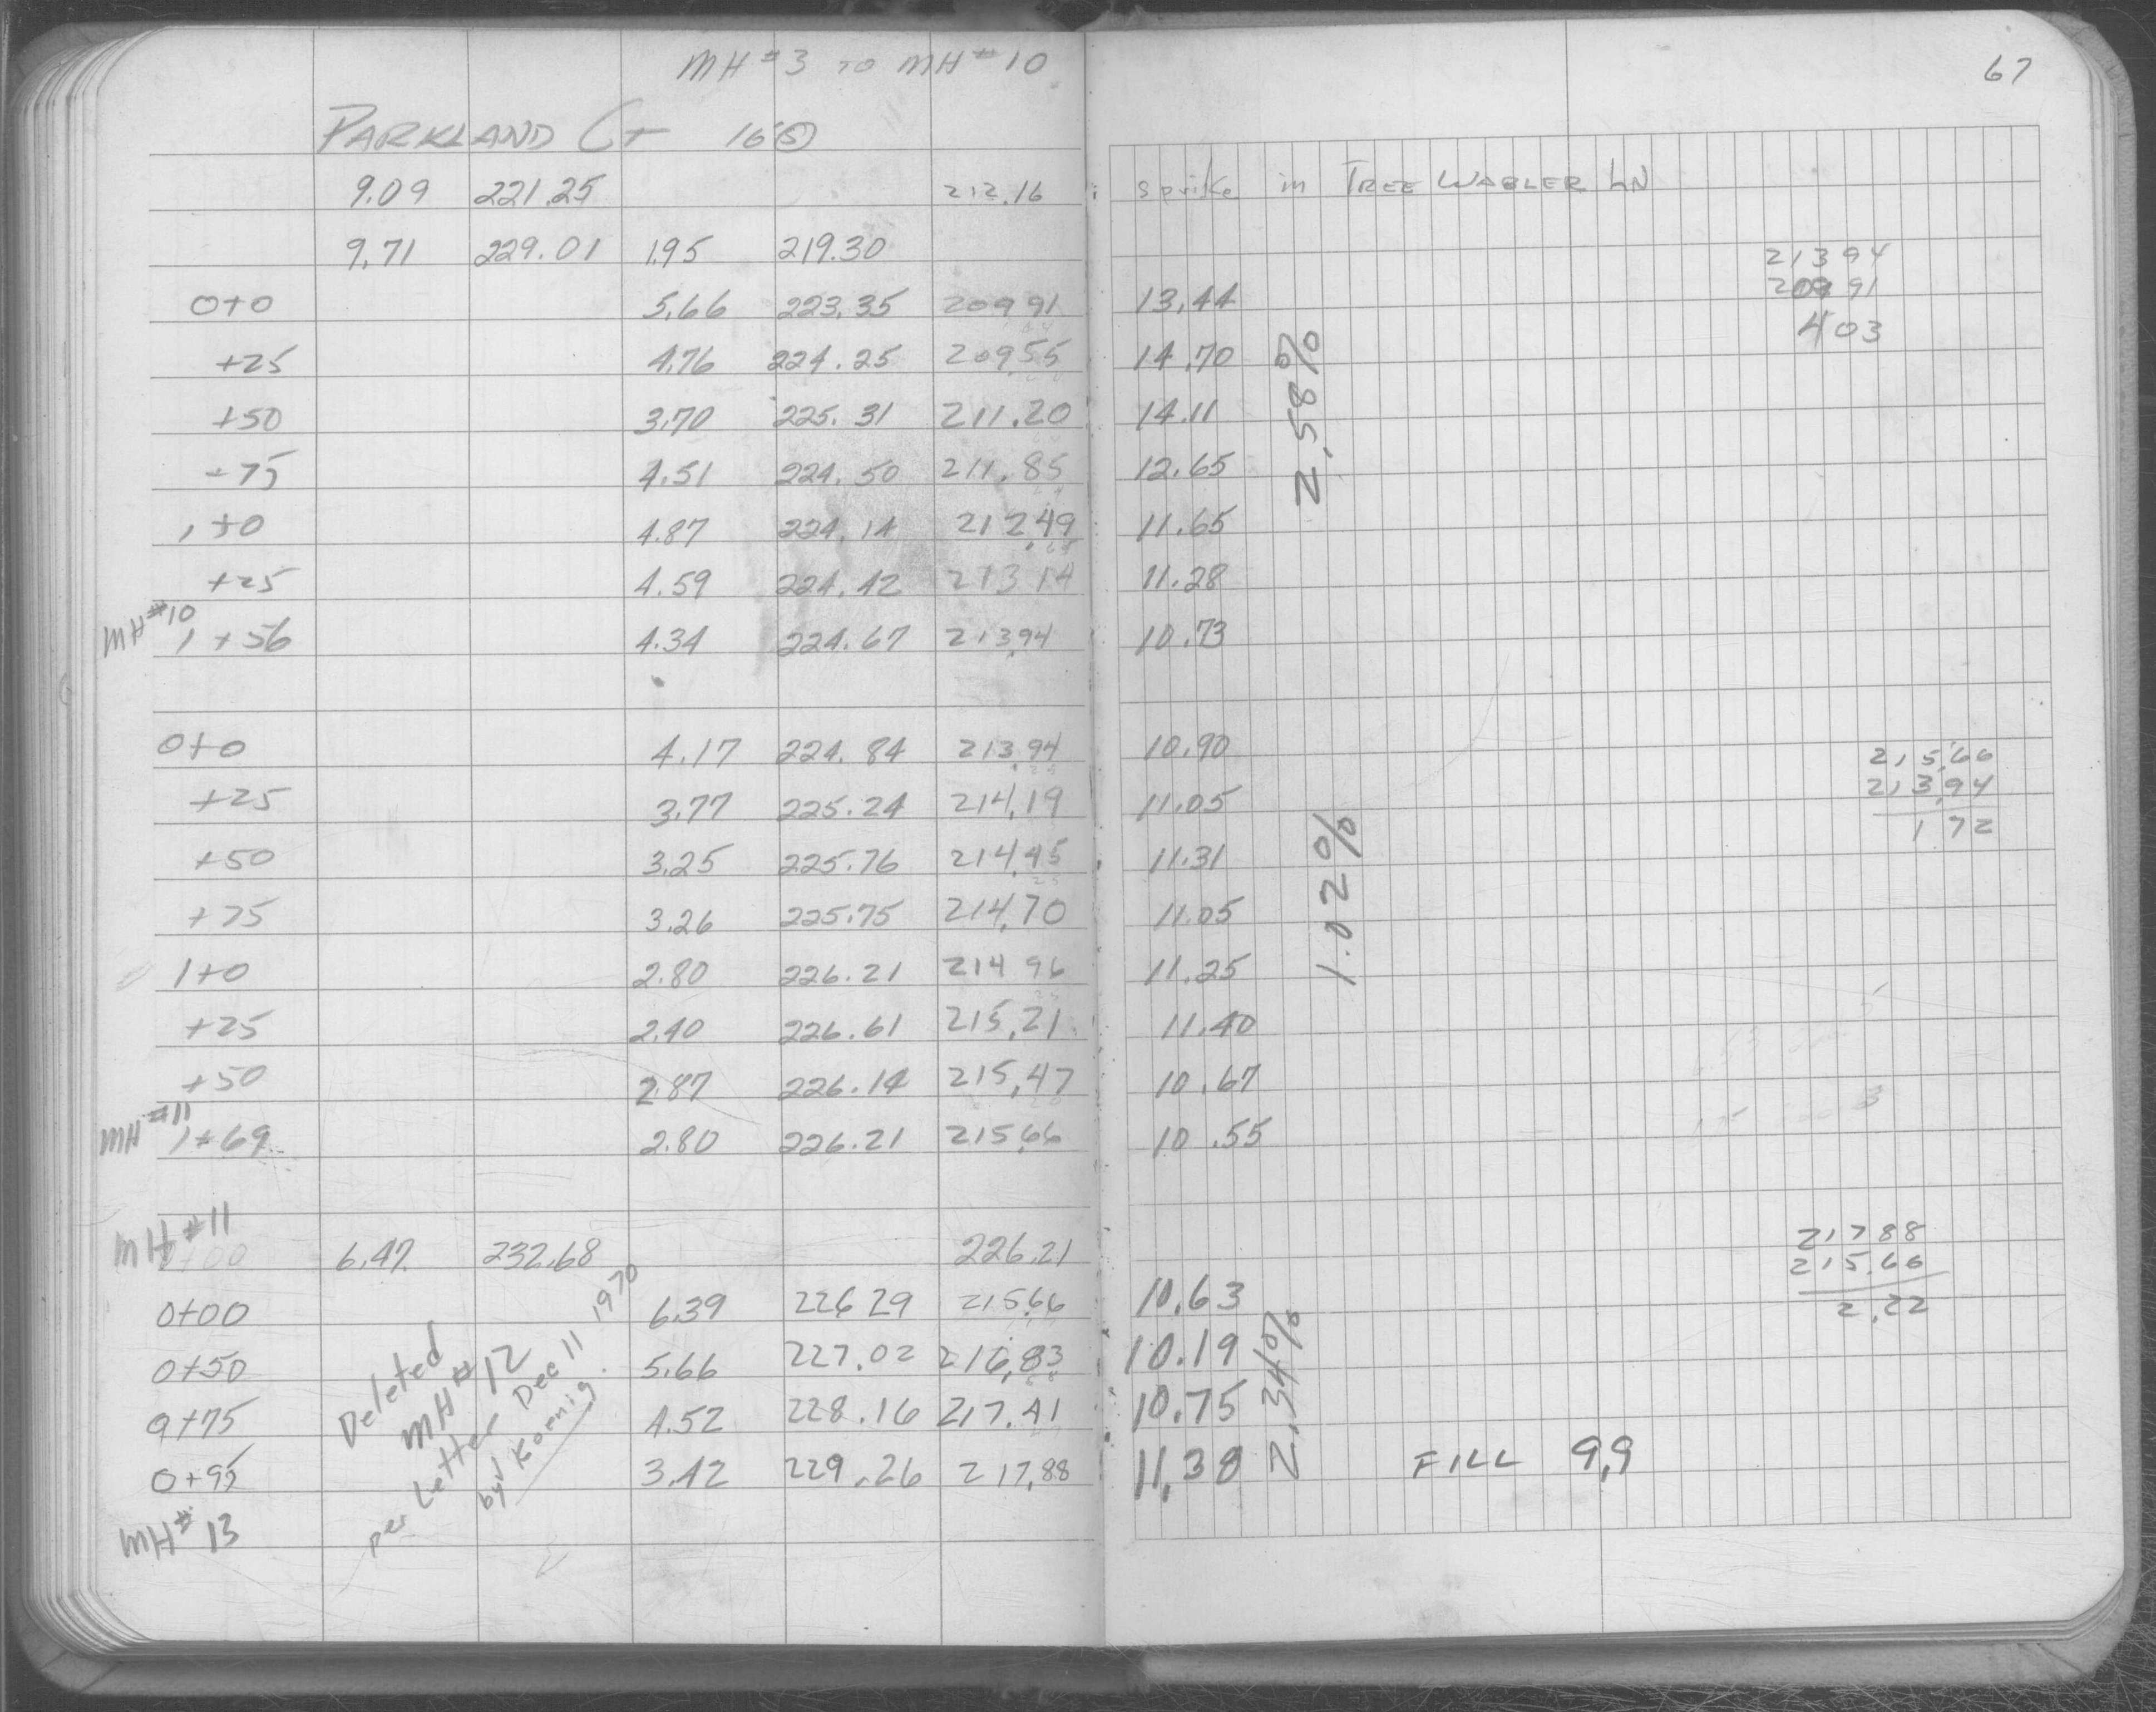 MH #3 TO MH #10
67
PARKLAND CT 16 S
9.09 221.25 212.16 spike in TREE WABLER LN
9.71 229.01 1.95 219.30
213 94
209 91
4 03
0+0 5.66 223.35 209 91 13.44
+25 4.76 224.25 209.55 14.70
+50 3.70 225.31 211.20 14.11
+75 4.51 224.50 211.85 12.65
2.58%
1+0 4.87 224.14 212.49 11.65
+25 4.59 224.42 213 14 11.28
MH #10
1+56 4.34 224.67 213.94 10.73
0+0 4.17 224.84 213.94 10.90
215.66
213.94
1.72
+25 3.77 225.24 214.19 11.05
+50 3.25 225.76 214.45 11.31
+75 3.26 225.75 214.70 11.05
1.02%
1+0 2.80 226.21 214 96 11.25
+25 2.40 226.61 215.21 11.40
+50 2.87 226.14 215.47 10.67
MH #11
1+69 2.80 226.21 215.66 10.55
MH #11
0+00 6.47 232.68 226.21
217 88
215.66
2.22
0+00 6.39 226 29 215.66 10.63
0+50 5.66 227.02 216.83 10.19
0+75 4.52 228.16 217.41 10.75
0+95 3.42 229.26 217.88 11.38 FILL 9.9
2.34%
MH #13
Deleted
MH #12
per Letter Dec 11 1970
by Koenig